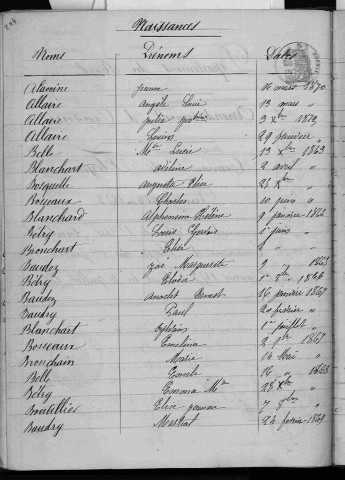 Naissances
Noms Prénoms Dates
Alamine Jeanne 16 mars 1870
Allaire Angèle Marie 13 mars "
Allaire 3 Xbre 1870
Allaire Louise 29 janvier "
Belle Mie Lucie 13 Xbre 1863
Blanchart Adeline 2 avril "
Bosquette Auguste Elise 25 Xbre
Boueaux Charles 10 juin "
Blanchard Alphonsine Hélène 9 janvier
Bétry Louis Gervais 1er juin "
Bronchart Elise 2 "
Baudez Zoé Marguerite 9
Bétry Eloïse 1er 8bre 1866
Baudez Anaclet Ernest 16 janvier 1867
Baudry Paul 20 février "
Blanchart 1er juillet "
Boueaux Emelina 2 9bre 1867
Bronchain Marie 14 Mai "
Belle 16 " 1868
Bétry Emma Mie 28 Xbre
Boutellier Elise Jeanne 7 8bre "
Baudry Martial 24 février 1869